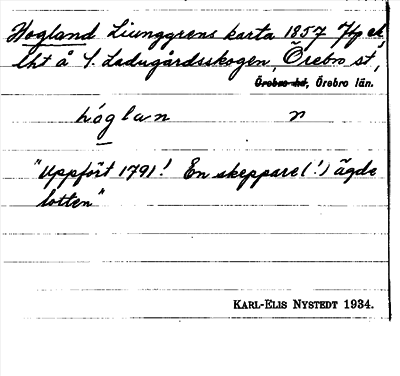 Hogland Ljunggrens karta 1857
lht å S. Ladugårdsskogen, Örebro st,
Örebro hd, Örebro län.
hóglan n
"Uppfört 1791! En skeppare (!) ägde
lotten"
KARL-ELIS NYSTEDT 1934.